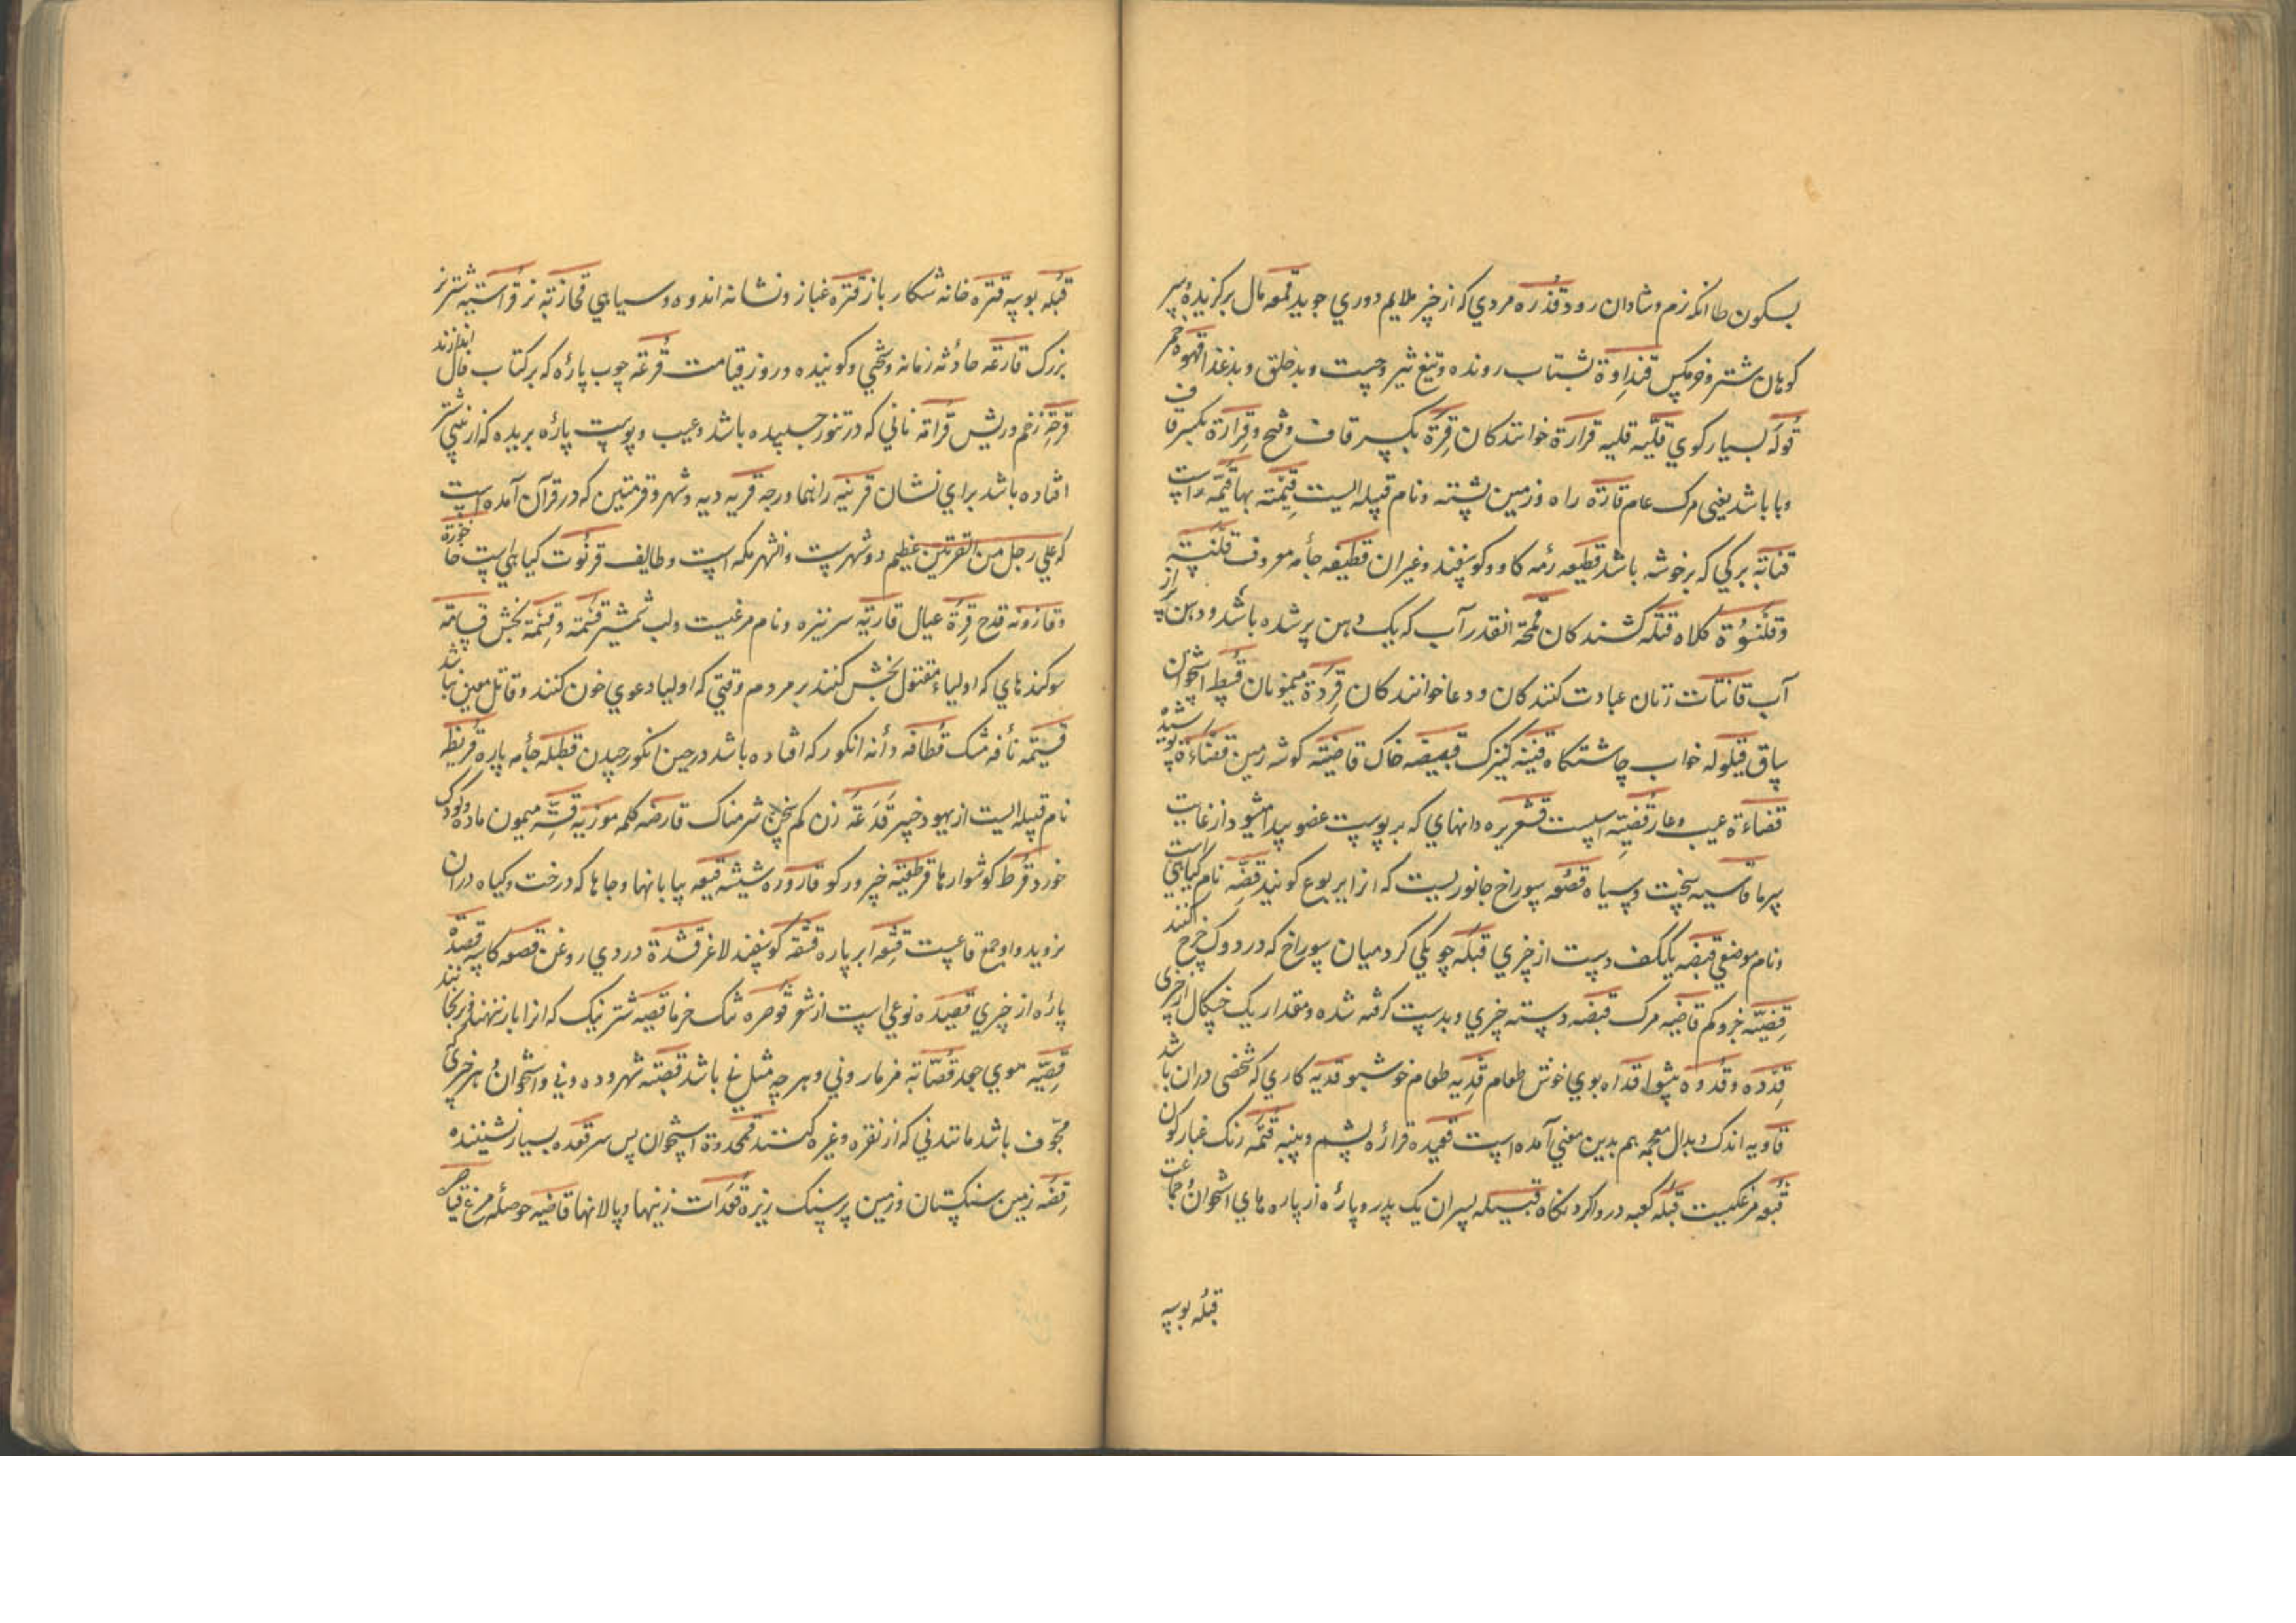 بسکون طا انکه نرم و شادان رود قذره مردي که از خیر ملایم دوري جوید قمعه مال برکزیدهٔ سر
کوهان شتر و خرمکس قنداوة بشتاب رونده و تیغ تیز و چست و بدخلق و بدغذا قهوه خمر
قوله بسیار کوي قلیّه قلیه قرارة خوانندکان قرة بکسر قاف و فتح و قرارة بکسر قاف
وبا باشد یعنی مرک عام قارة راه و زمین پشته و نام قبیله ایست قیمته بها قمّه راست
قنابه برکي که بر خوشه باشد قطیعه رمه کاو و کوسفند و غیر ان قطیفه جامه معروف قلنسیه
و قلنسوة کلاه قتله کشندکان قمحة انقدر آب که یک دهن پر شده باشد و دهن پر از
آب قانتات زنان عبادت کنندکان و دعا خوانندکان قردة میمونان قسط اسخوان
ساق قیلوله خواب چاشتکاه قینه کنیزک قبیصه خاک قاضیته کوشه زمین قضاءة پوسیده شد
قضاءة عیب و عار قضیّه اسپست قشعریره دانهاي که بر پوست عضو پیدا میشود از غایت
سرما قاسیه سخت و سیاه قصعه سوراخ جانوریست که انرا یربوع کویند قضّه نام کیاهي است
و نام موضعي قبضه یککف دست از چیزي قبله چوبکي کرد میان سوراخ که در دوک چرخ کنند
قضیّه خبر و حکم قاضیه مرک قبضه دسته چیزي و بدست کرفته شده و مقدار یک خچکال از چیزی
قددة و قدوه پیشوا قداه بوي خوش طعام قدیه طعام خوشبو قدیه کاري که شخصی دران باشد
قاویه اندک و بدال معجمه هم بدین معنی آمده است قعیده قرارهٔ پشم و پنبه قتمه رنک غبارکون
قبعه مرغکیست قبله کعبه درو اکرد نکاه قبیله پسران یک پدر و پارهٔ از پاره های اسخوان جماعت
قبله بوسه
قبله بوسه قتره خانه شکار باز قتره غبار و نشانه اندوه و سیاهي قحازته نر قراسیه شتر نر
بزرک قارعه حادثه زمانه و سختي و کوبنده و روز قیامت قرعه چوب پارهٔ که بر کتاب فال اندازند
قرحة زخم و ریش قرامه ناني که در تنور چسپیده باشد و عیب و پوست پارهٔ بریده که از بیني شتر
افتاده باشد براي نشان قرینه راهنما و رجه قریه دیه و شهر و قریتین که در قرآن آمده است
که علي رجل من القریتین عظیم دو شهرست و انشهر مکه است و طایف قرنوت کیاهي است خا خوره
و قازوته قدح قرة عیال قاریه سر نیزه و نام مرغیست و لب شمشیر قسمة و قسمة بخش قسامة
سوکندهاي که اولیاء مقتول بخش کنند بر مردم وقتي که اولیا دعوي خون کنند و قاتل معین نباشد
قسیمه نافه مشک قطافه دانه انکور که افتاده باشد در حین انکور چیدن قطیله جامه پاره قریظه
نام قبیله ایست از یهود خیبر قَدَعَهُ زن کم سخن شرمناک قارصه کلمه موزیه قشّه میمون ماده و کودک
خورد قرط کوشوارها قرطعبه خیر و رکو قاروره شیشه قیعه بیابانها و جاها که درخت و کیاه دران
نروید واو جمع قاعست قشعه ابر پاره قشقه کوسفند لاغر قشدة دردي روغن قصعه کاسه قصدة
پارهٔ از چیزي قصیده نوعي است از شعر قوصره شک خرما قصیه شتر نیک که انرا بار ننهند و بر بجا بند
قصیّه موي جعد قصّابه مزمار و ني و هر چه مثل ني باشد قصبته شهر و ده و ني و اسخوان هر چیزي که
مجوّف باشد مانند ني که از نقره و غیره کنند قمحدوة اسخوان پس سر قعده بسیار نشیننده
قضه زمین سنکستان و زمین پرسنک ریزه قعدات زینها و پالانها قاضیه حوصله مرغ